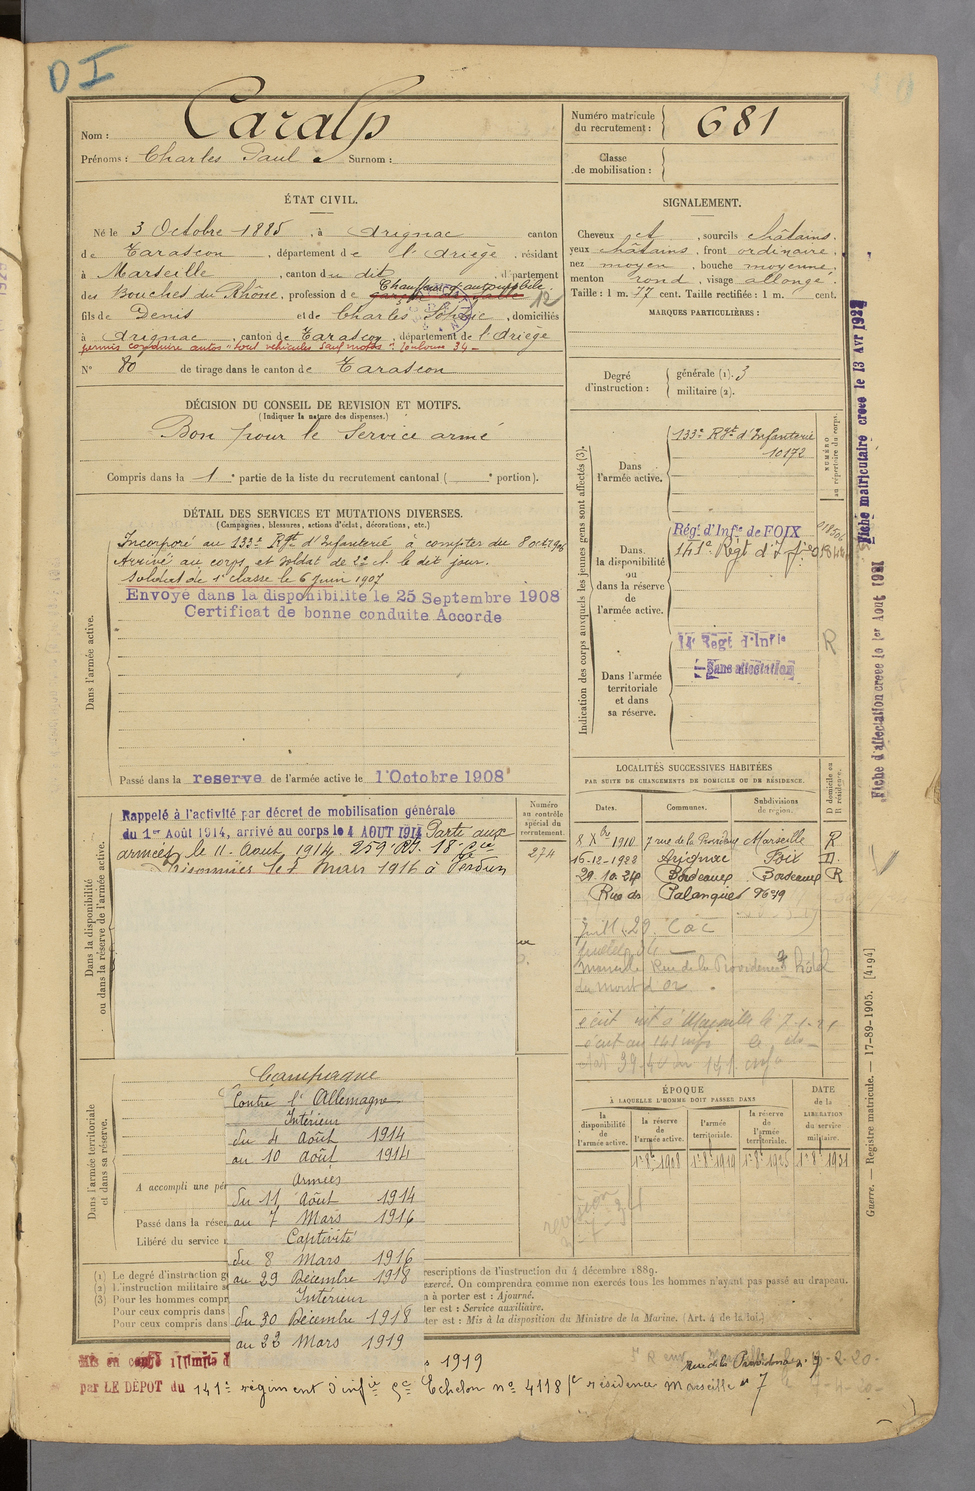 DI
Nom : Caralp
Prénoms : Charles Paul Surnom :
Numéro matricule du recrutement : 681
Classe de mobilisation :
ÉTAT CIVIL.
Né le 3 Octobre 1885, à Arignac canton
de Tarascon, département de l'Ariège, résidant
à Marseille, canton du dit, département
des Bouches du Rhône, profession de Chauffeur d'automobile
12
fils de Denis et de Charles Sophie, domiciliés
à Arignac, canton de Tarascon, département de l'Ariège
permis conduire autos "tout véhicules sauf motos" Toulouse 34
N° 80 de tirage dans le canton de Tarascon
SIGNALEMENT.
Cheveux et, sourcils châtains,
yeux châtains, front ordinaire,
nez moyen, bouche moyenne,
menton rond, visage allongé.
Taille : 1 m. 77 cent. Taille rectifiée : 1 m. cent.
MARQUES PARTICULIÈRES :
Degré d'instruction : générale (1). 3
militaire (2).
DÉCISION DU CONSEIL DE REVISION ET MOTIFS.
(Indiquer la nature des dispenses.)
Bon pour le Service armé
Compris dans la 1e partie de la liste du recrutement cantonal ( e portion).
DÉTAIL DES SERVICES ET MUTATIONS DIVERSES.
(Campagnes, blessures, actions d'éclat, décorations, etc.)
Dans l'armée active.
Incorporé au 133e Rgt d'Infanterie à compter du 8 oct 1906
Arrivé au corps et soldat de 2e cl. le dit jour.
Soldat de 1e classe le 6 Juin 1907
Envoyé dans la disponibilité le 25 Septembre 1908
Certificat de bonne conduite Accorde
Passé dans la reserve de l'armée active le 1 Octobre 1908
Indication des corps auxquels les jeunes gens sont affectés (3).
NUMÉRO au répertoire du corps.
Dans l'armée active.
133e Rgt d'Infanterie
10172
Dans la disponibilité ou dans la réserve de l'armée active.
Régt d'Infie de FOIX
141e Régt d'Infie
Dans l'armée territoriale et dans sa réserve.
14e Régt d'Infie
Sans affectation
R
Dans la disponibilité ou dans la réserve de l'armée active.
Numéro au contrôle spécial du recrutement.
274
Rappelé à l'activité par décret de mobilisation générale
du 1er Août 1914, arrivé au corps le 4 AOUT 1914 Parti aux
armées le 11 Aout 1914. 259e R.I. 18e Cie
Prisonnier le 7 Mars 1916 à Verdun
LOCALITÉS SUCCESSIVES HABITÉES
PAR SUITE DE CHANGEMENTS DE DOMICILE OU DE RÉSIDENCE.
D domicile ou R résidence.
Dates. Communes. Subdivisions de région.
8 Xbre 1910 7 rue de la Providence Marseille R
16-12-1922 Arignac Foix D.
29.10.24 Bordeaux Bordeaux R
Rue des Palanques
Marseille Rue de la Providence 7 Hôtel
du mont d'or.
Dans l'armée territoriale et dans sa réserve.
Campagne
Contre l'Allemagne
Intérieur
du 4 Août 1914
au 10 Août 1914
Armées
du 11 Août 1914
au 7 Mars 1916
Captivité
du 8 Mars 1916
au 29 Décembre 1918
Intérieur
du 30 Décembre 1918
au 23 Mars 1919
A accompli une pér
Passé dans la réser
Libéré du service
ÉPOQUE
À LAQUELLE L'HOMME DOIT PASSER DANS
DATE de la LIBÉRATION du service militaire.
la disponibilité de l'armée active.
la réserve de l'armée active.
l'armée territoriale.
la réserve de l'armée territoriale.
1er 8bre 1908 1er 8bre 1919 1er 8bre 1925 1er 8bre 1931
(1) Le degré d'instruction g rescriptions de l'instruction du 4 décembre 1889.
(2) L'instruction militaire s exercé. On comprendra comme non exercés tous les hommes n'ayant pas passé au drapeau.
(3) Pour les hommes compr n à porter est : Ajourné.
Pour ceux compris dans ter est : Service auxiliaire.
Pour ceux compris dans ter est : Mis à la disposition du Ministre de la Marine. (Art. 4 de la loi.)
Mis en congé illimité d 1919
par LE DÉPOT du 141e régiment d'infie 5e Echelon no 4118 se résidence Marseille
rue de la Providence 7
Fiche matriculaire creee le 13 Avr 1922
Fiche d'affectation creee le 1er Aout 1921
Guerre. — Registre matricule. — 17-89-1905. [4194]